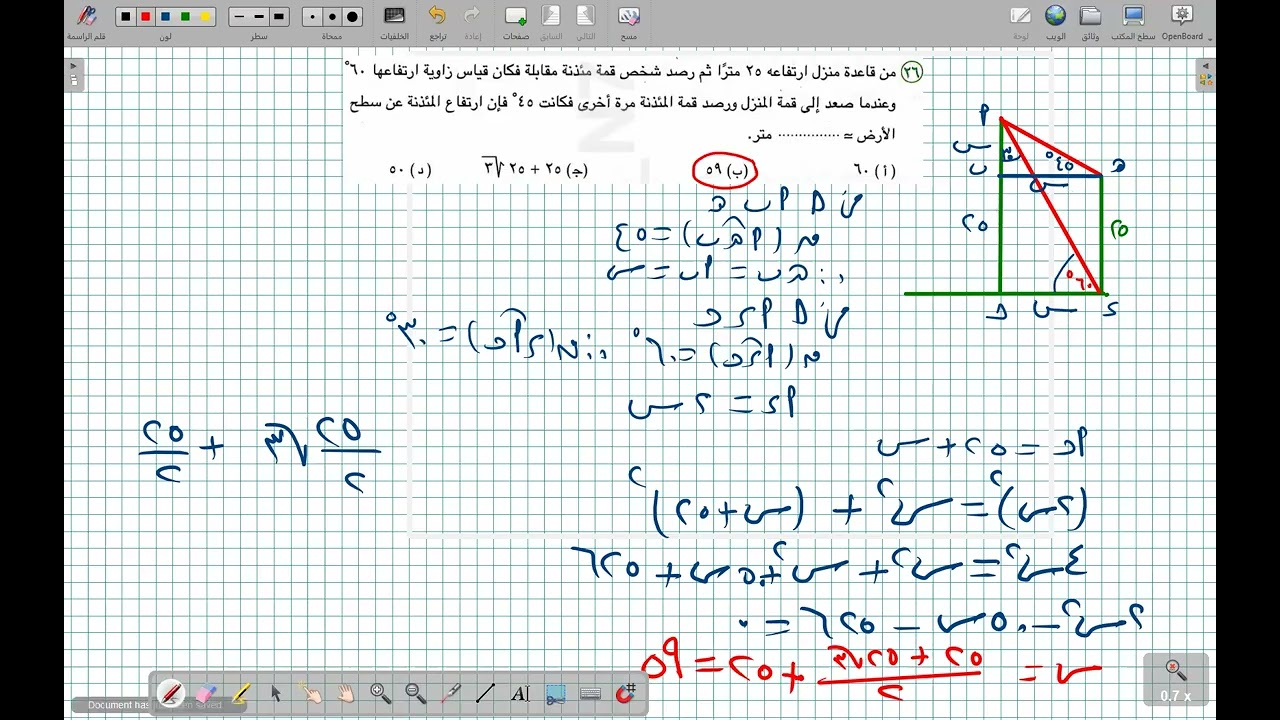 قلم الراسمة
لون
سطر
ممحاة
الخلفيات
تراجع
إعادة
صفحات
السابق
التالي
مسح
لوحة
الويب
وثائق
سطح المكتب
OpenBoard
٢٦ من قاعدة منزل ارتفاعه ٢٥ مترًا ثم رصد شخص قمة مئذنة مقابلة فكان قياس زاوية ارتفاعها ٦٠°
وعندما صعد إلى قمة المنزل ورصد قمة المئذنة مرة أخرى فكانت ٤٥° فإن ارتفاع المئذنة عن سطح
الأرض ≃ ............... متر.
(أ) ٦٠ (ب) ٥٩ (جـ) ٢٥ + ٢٥ √٣ (د) ٥٠
في Δ أ ب هـ
ق (أهـب) = ٤٥
∴ هـب = أب = س
في Δ أ د حـ
ق (أدحـ) = ٦٠° ∴ ق (دأحـ) = ٣٠°
أد = ٢س
أحـ = ٢٥ + س
(٢س)² = س² + (س + ٢٥)²
٤س² = س² + س² + ٥٠س + ٦٢٥
٢س² − ٥٠س − ٦٢٥ = ٠
س = (٢٥ + ٢٥√٣)/٢ + ٢٥ = ٥٩
٢٥/٢ √٣ + ٢٥/٢
أ
س
٣٠
٤٥°
هـ
ب
س
٢٥
٢٥
٦٠°
حـ
س
د
Document has
saved
0.7 x